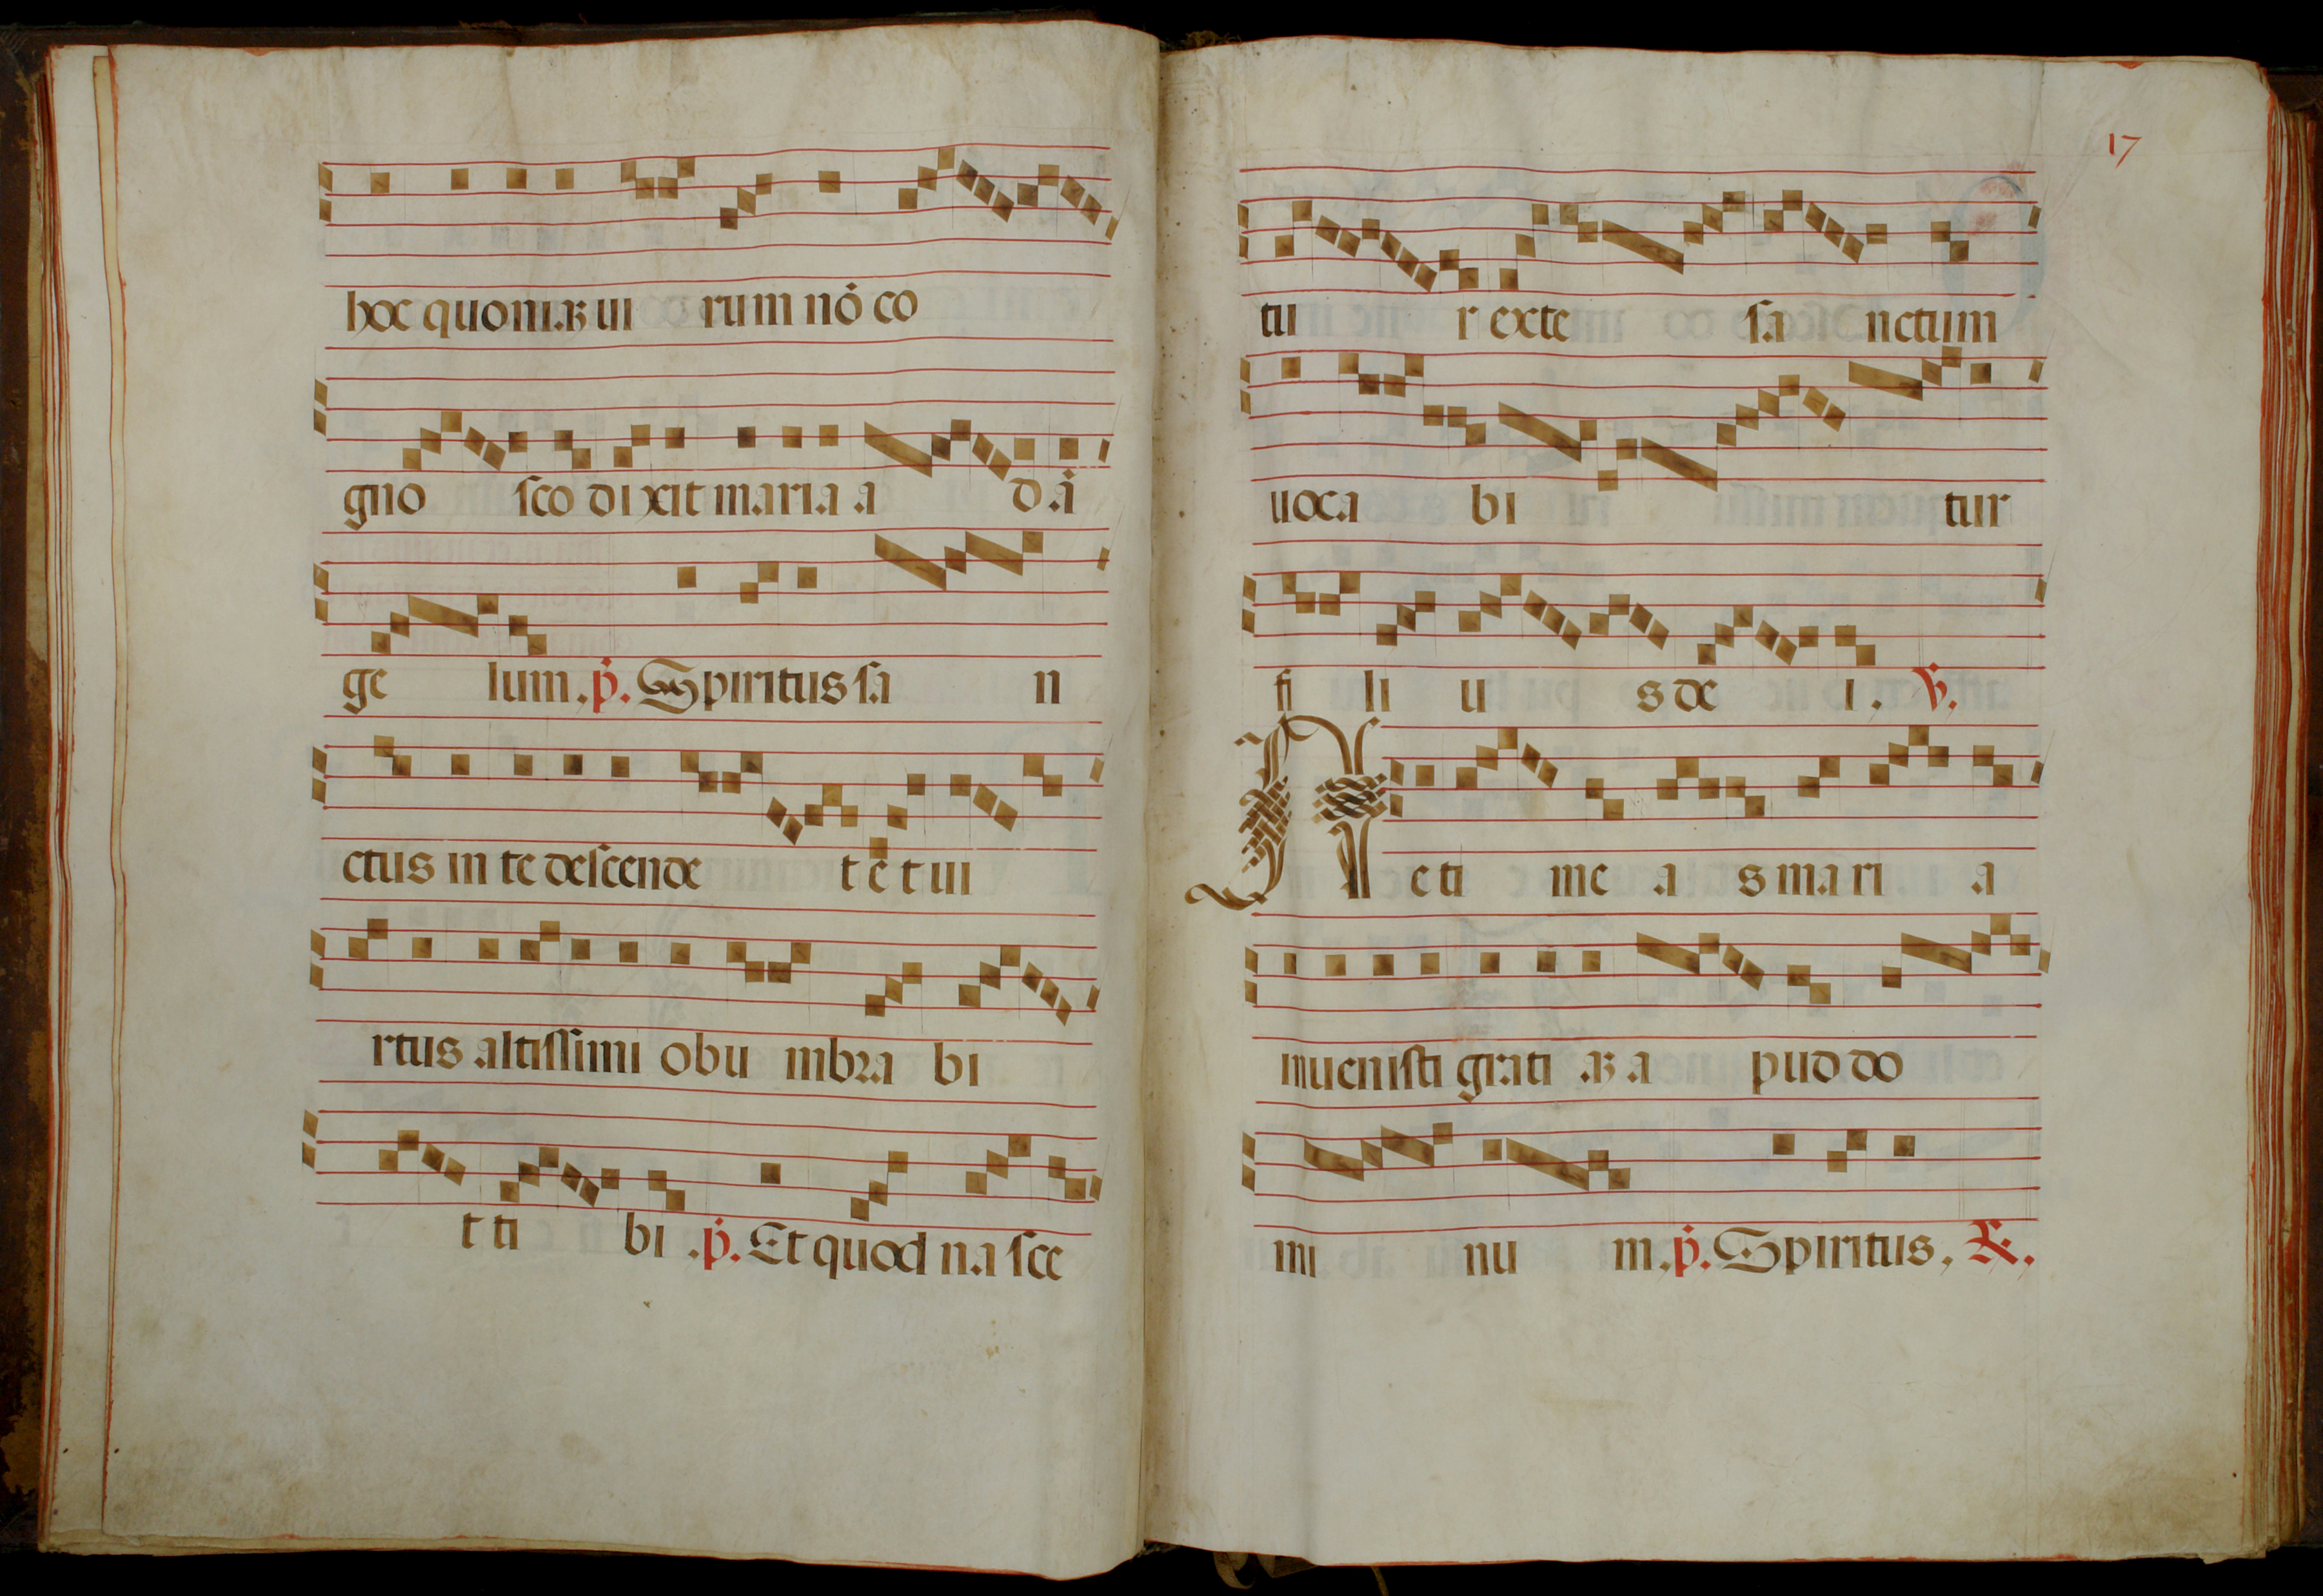 hoc quoniaꝫ ui rum nō co
gno sco dixit maria a d ā
ge lum. p̄. Spiritus ſa n
ctus in te deſcende t ē t ui
rtus altiſſimi obu mbra bi
t ti bi. p̄. Et quod na ſce
17
tu r exte ſa nctum
uoca bi tur
fi li u s de i. ℣.
N e ti me a s mari a
inueniſti grati aꝫ a pud do
mi nu m. p̄. Spiritus. ℟.